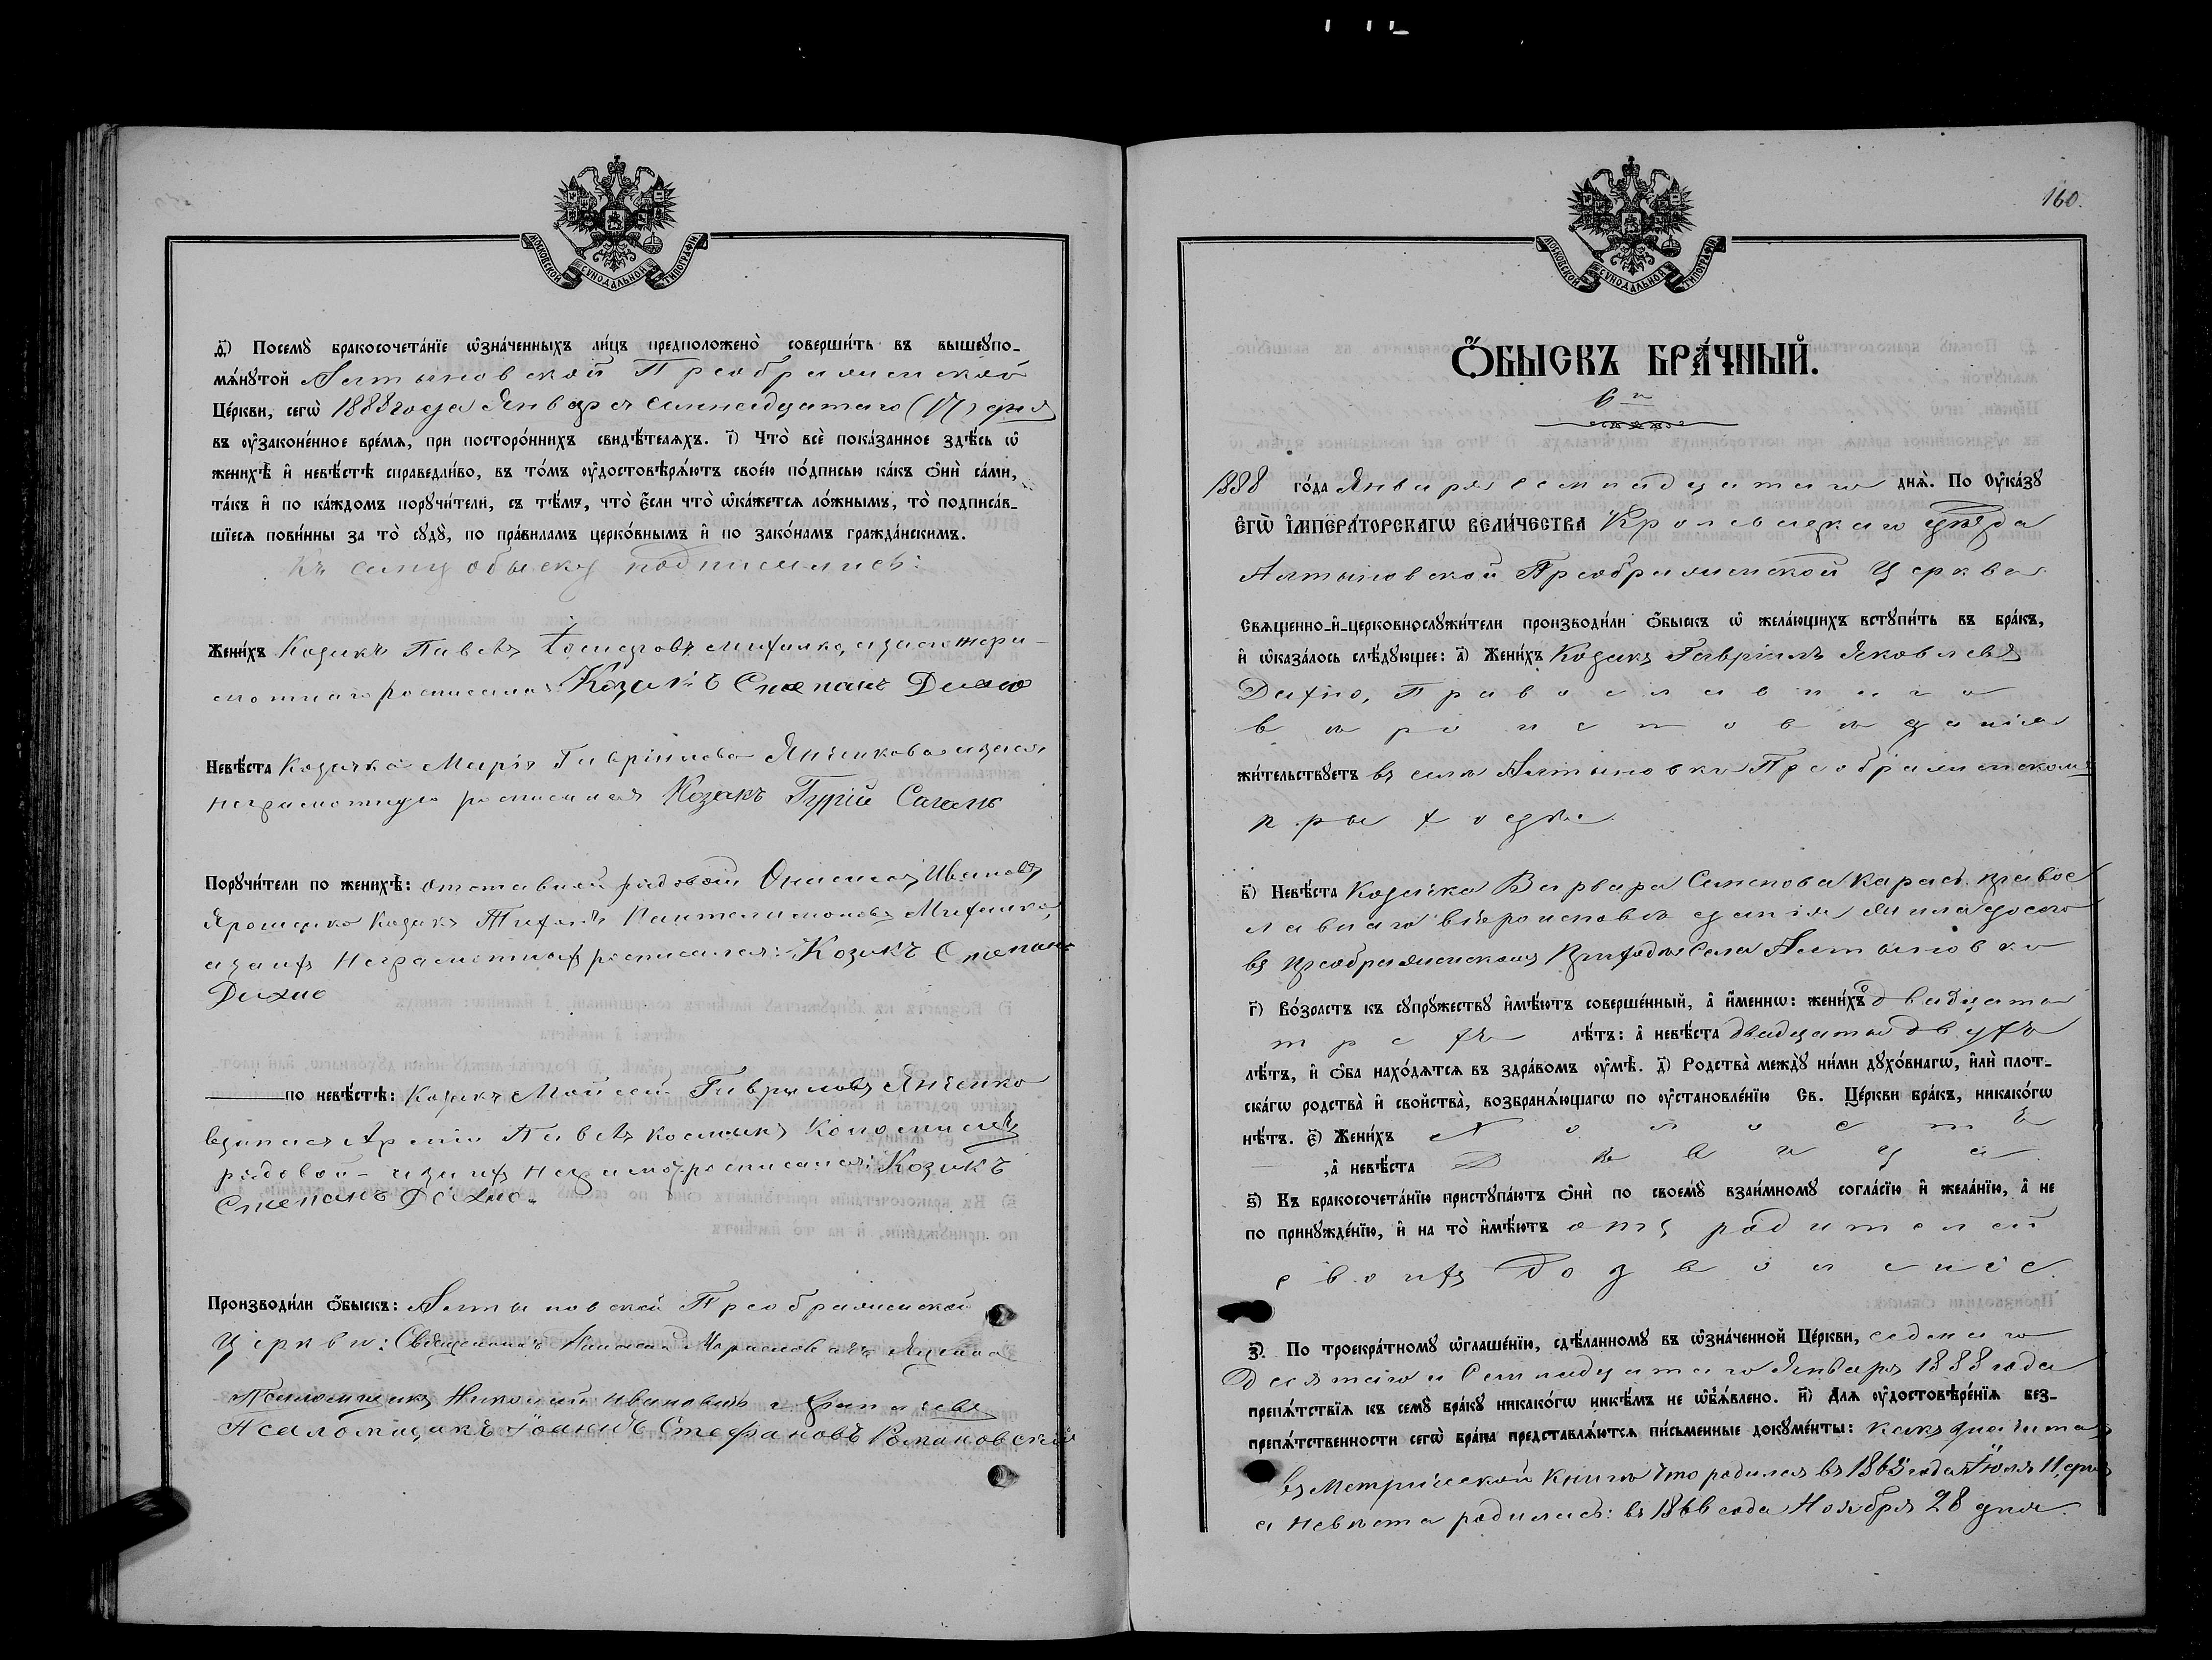 МОСКОВСКОЙ СѴНОДАЛЬНОЙ ТИПОГРАФІИ
ѳ҃) Посемꙋ̀ бракосочета́нїе ѡ҆зна́ченныхъ ли́цъ предположено̀ соверши́ть въ вышеꙋпо-
мѧ́нꙋтой Алтыновской Преображенской
Це́ркви, сегѡ̀ 1888 года Января семнадцатаго (17) дня
въ ᲂу҆зако́ненное вре́мѧ, при посторо́ннихъ свидѣ́телѧхъ. і҃) Что̀ всѐ пока́занное здѣ́сь ѡ҆
женихѣ̀ и҆ невѣ́стѣ справедли́во, въ то́мъ ᲂу҆достовѣрѧ́ютъ свое́ю по́дписью ка́къ ѻ҆нѝ са́ми,
та́къ и҆ по ка́ждомъ порꙋчи́тели, съ тѣ́мъ, что̀ є҆́сли что̀ ѡ҆ка́жетсѧ ло́жнымъ, то̀ подписа́в-
шїесѧ пови́нны за то̀ сꙋдꙋ̀, по пра́виламъ церко́внымъ и҆ по зако́намъ гражда́нскимъ.
Къ сему обыску подписались:
Жени́хъ Козакъ Павелъ
росписался Козакъ Степанъ Дихно
Невѣ́ста Козачка Марія Гавріилова Янченкова а за нея
неграмотную росписался Козакъ Гурій Сагань
Порꙋчи́тели по женихѣ̀: отставной рядовой Онисимъ Ивановъ
Ярошенко Козакъ Пантелимоновъ
а за ихъ неграмотныхъ росписался: Козакъ Степанъ
Дихно
по невѣ́стѣ: Козакъ Мойсей Гавриловъ Янченко
Павелъ
рядовой - а за ихъ неграмот. росписался: Козакъ
Степанъ Дихно.
Производи́ли ѻ҆́быскъ: Алтыновской Преображенской
Церкви: Священникъ
Псаломщикъ Николай Ивановъ
Псаломщикъ Іоаннъ Стефановъ Романовскій
160.
МОСКОВСКОЙ СѴНОДАЛЬНОЙ ТИПОГРАФІИ
Ѻ҆́БЫСКЪ БРА́ЧНЫЙ.
6й
1888 го́да Января семнадцатаго днѧ̀. По Оу҆ка́зꙋ
Є҆ГѠ̀ І҆МПЕРА́ТОРСКАГѠ ВЕЛИ́ЧЕСТВА Кролевецкаго уѣзда
Алтыновской Преображенской Церкви
Свѧщенно-и҆-церковнослꙋжи́тели производи́ли ѻ҆́быскъ ѡ҆ жела́ющихъ встꙋпи́ть въ бра́къ,
и҆ ѡ҆каза́лось слѣ́дꙋющее: а҃) Жени́хъ Козакъ Гавріилъ Яковлевъ
Дихно, Православнаго
вѣроисповѣданія
жи́тельствꙋетъ въ селѣ Алтыновкѣ Преображенскомъ
приходѣ.
в҃) Невѣ́ста Козачка Варвара Семенова Карась правос
лавнаго вѣроисповѣданія
въ Преображенскомъ Приходѣ Села Алтыновки
г҃) Во́зрастъ къ сꙋпрꙋ́жествꙋ и҆мѣ́ютъ соверше́нный, а҆ и҆́меннѡ: жени́хъ двадцати
трехъ лѣ́тъ: а҆ невѣ́ста двадцати двухъ
лѣ́тъ, и҆ ѻ҆́ба нахо́дѧтсѧ въ здра́вомъ ᲂу҆мѣ̀. д҃) Родства̀ междꙋ̀ ни́ми дꙋхо́внагѡ, и҆лѝ плот-
ска́гѡ родства̀ и҆ свойства̀, возбранѧ́ющагѡ по ᲂу҆становле́нїю Св. Це́ркви бра́къ, никако́гѡ
нѣ́тъ. є҃) Жени́хъ Холостъ
,а҆ невѣ́ста Дѣвица
ѕ҃) Къ бракосочета́нїю пристꙋпа́ютъ ѻ҆нѝ по своемꙋ̀ взаи́мномꙋ согла́сїю и҆ жела́нїю, а҆ не
по принꙋжде́нїю, и҆ на то̀ и҆мѣ́ютъ отъ родителей
своихъ дозволеніе.
з҃). По троекра́тномꙋ ѡ҆глаше́нїю, сдѣ́ланномꙋ въ ѡ҆зна́ченной Це́ркви, седмаго
Десятаго и Семнадцатаго Января 1888 года
препѧ́тствїѧ къ семꙋ̀ бра́кꙋ никако́гѡ никѣ́мъ не ѡ҆б̾ѧ́влено. и҃) Длѧ ᲂу҆достовѣре́нїѧ без-
препѧ́тственности сегѡ̀ бра́ка представлѧ́ютсѧ пи́сьменные докꙋме́нты: какъ значится
въ Метрической книгѣ что родился въ года Іюля 11 дня
а невѣста родилась: въ 1866 года Ноября 28 дня.